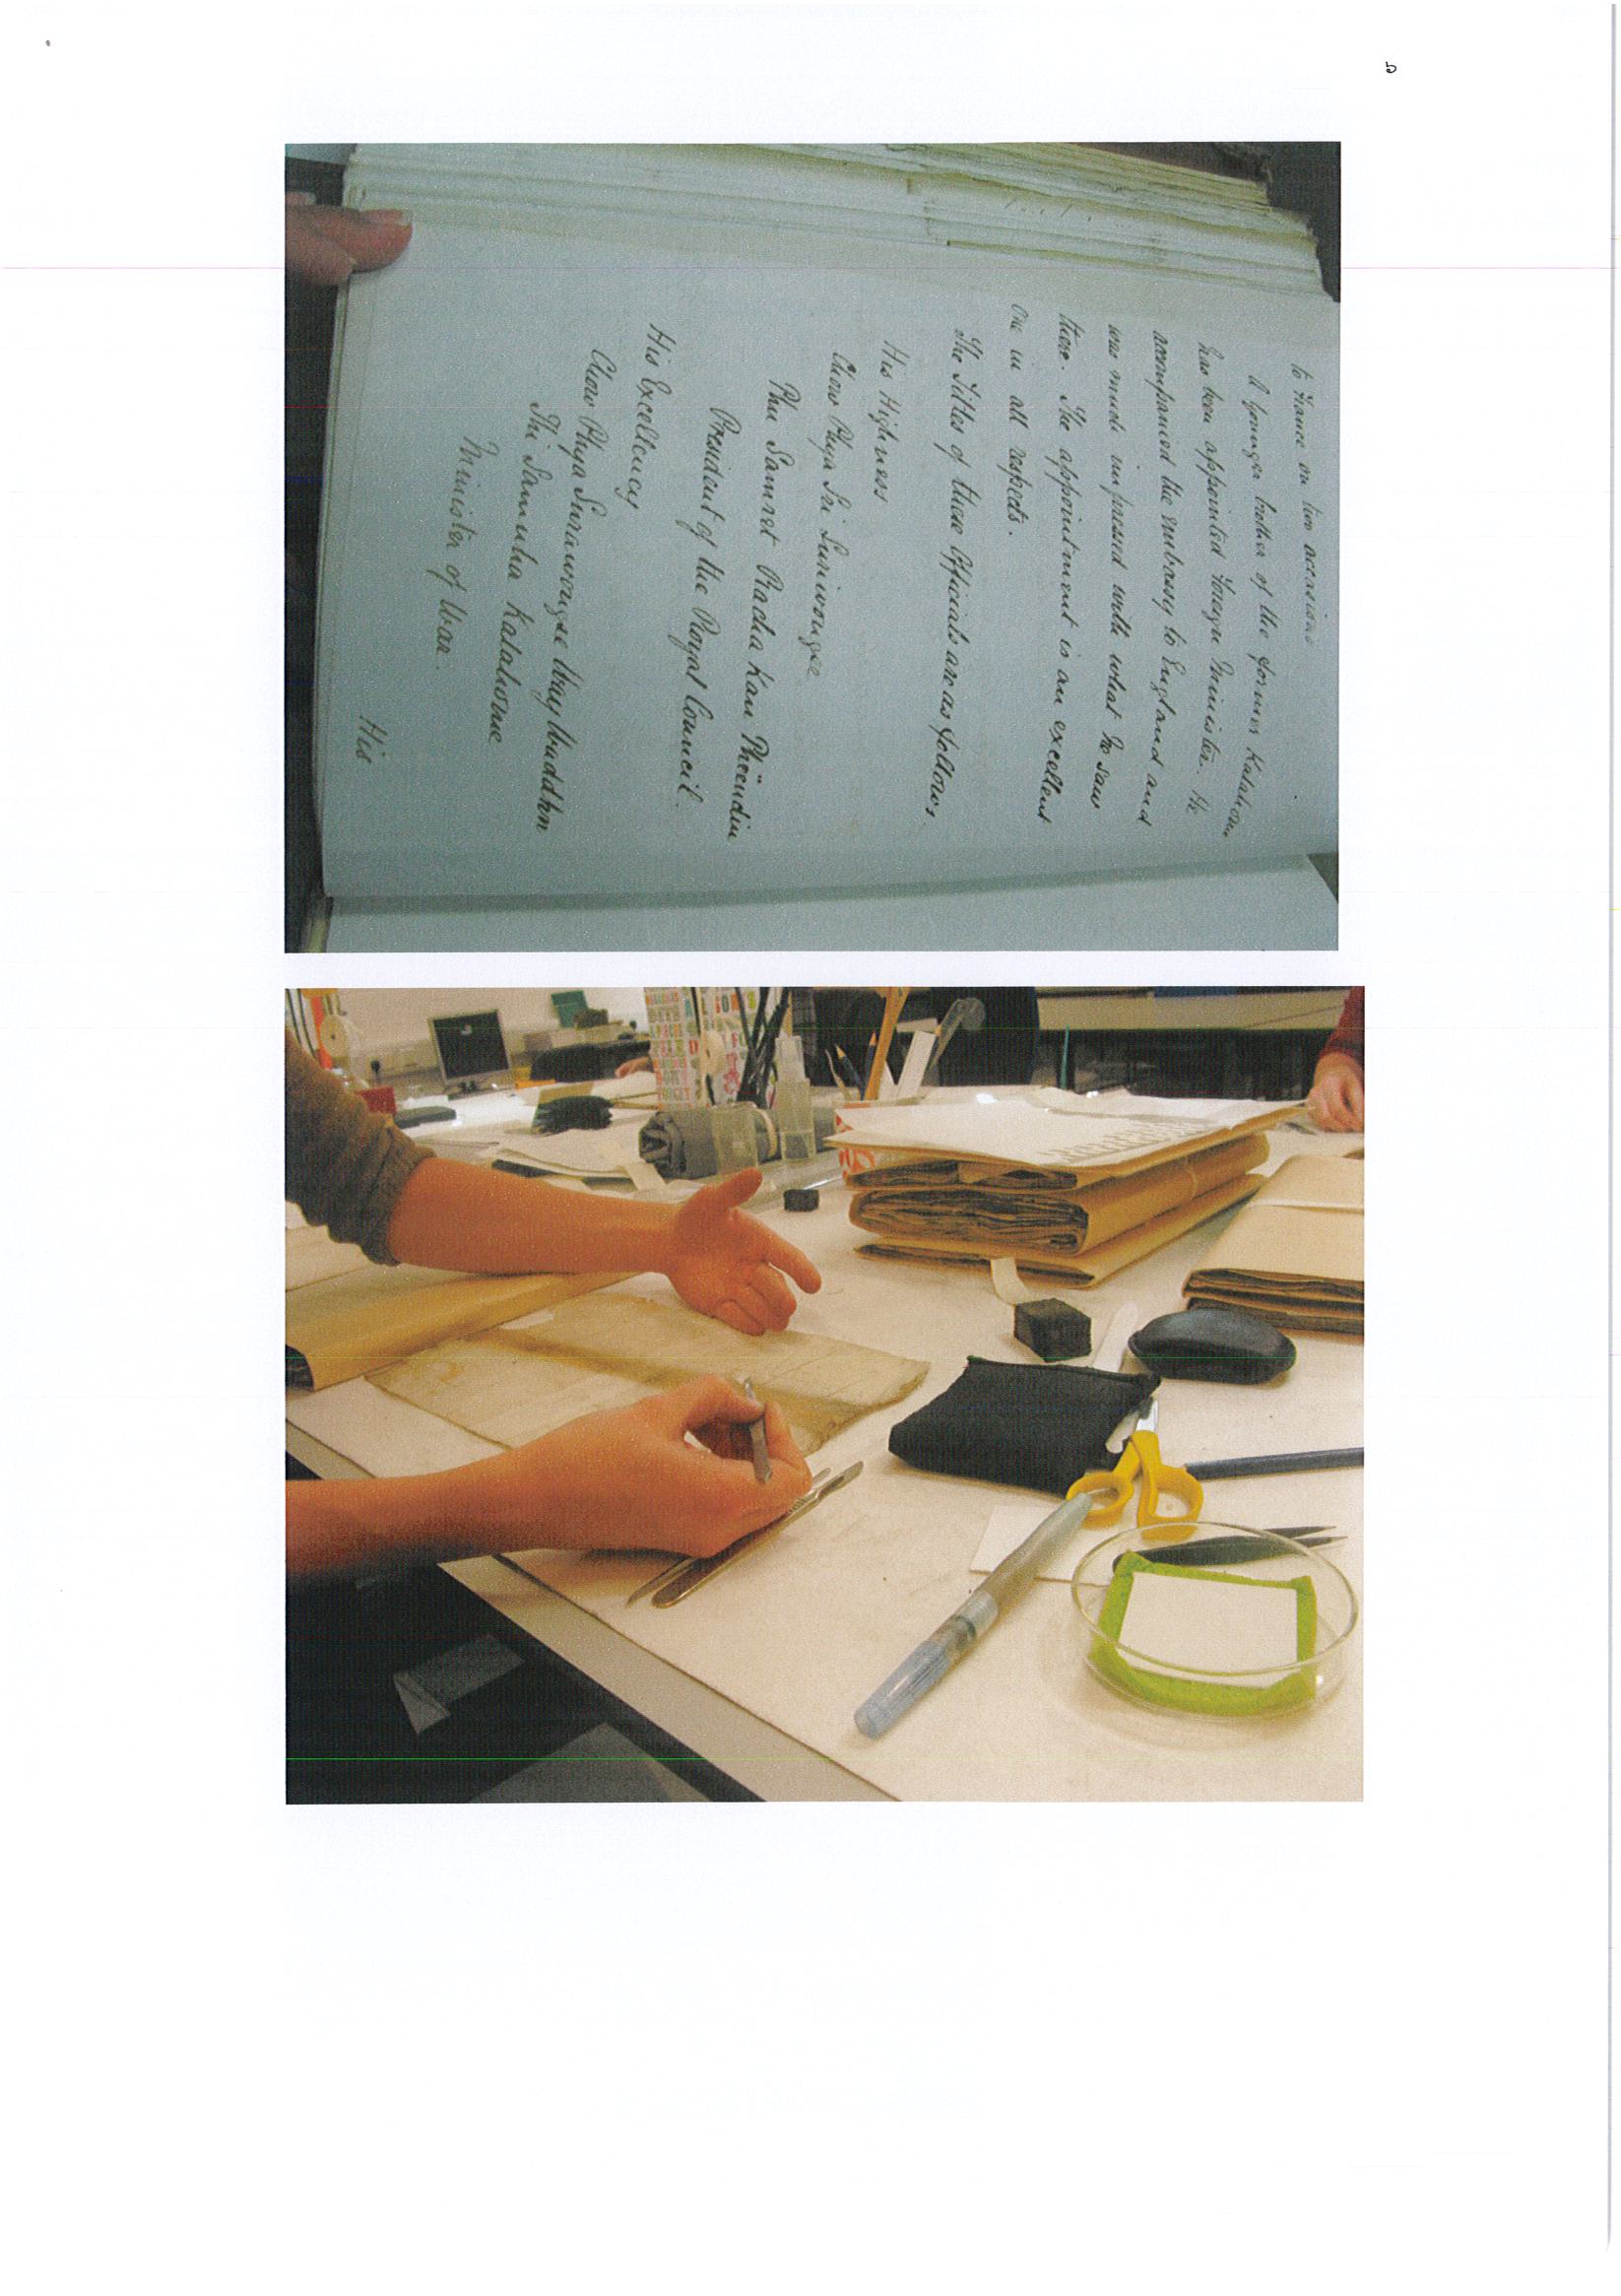 5
to France on two occasions
A younger brother of the former Kalahom
has been appointed Foreign Minister. He
accompanied the embassy to England and
was much impressed with what he saw
there. The appointment is an excellent
one in all respects.
The Titles of these Officials are as follows.
His Highness
Chow Phya Sri Suriwongse
Phu Samret Racha Kan Phëendin
President of the Royal Council.
His Excellency
Chow Phya Surawongse Way Wuddhn
Thi Samuha Kalahome
Minister of War.
His